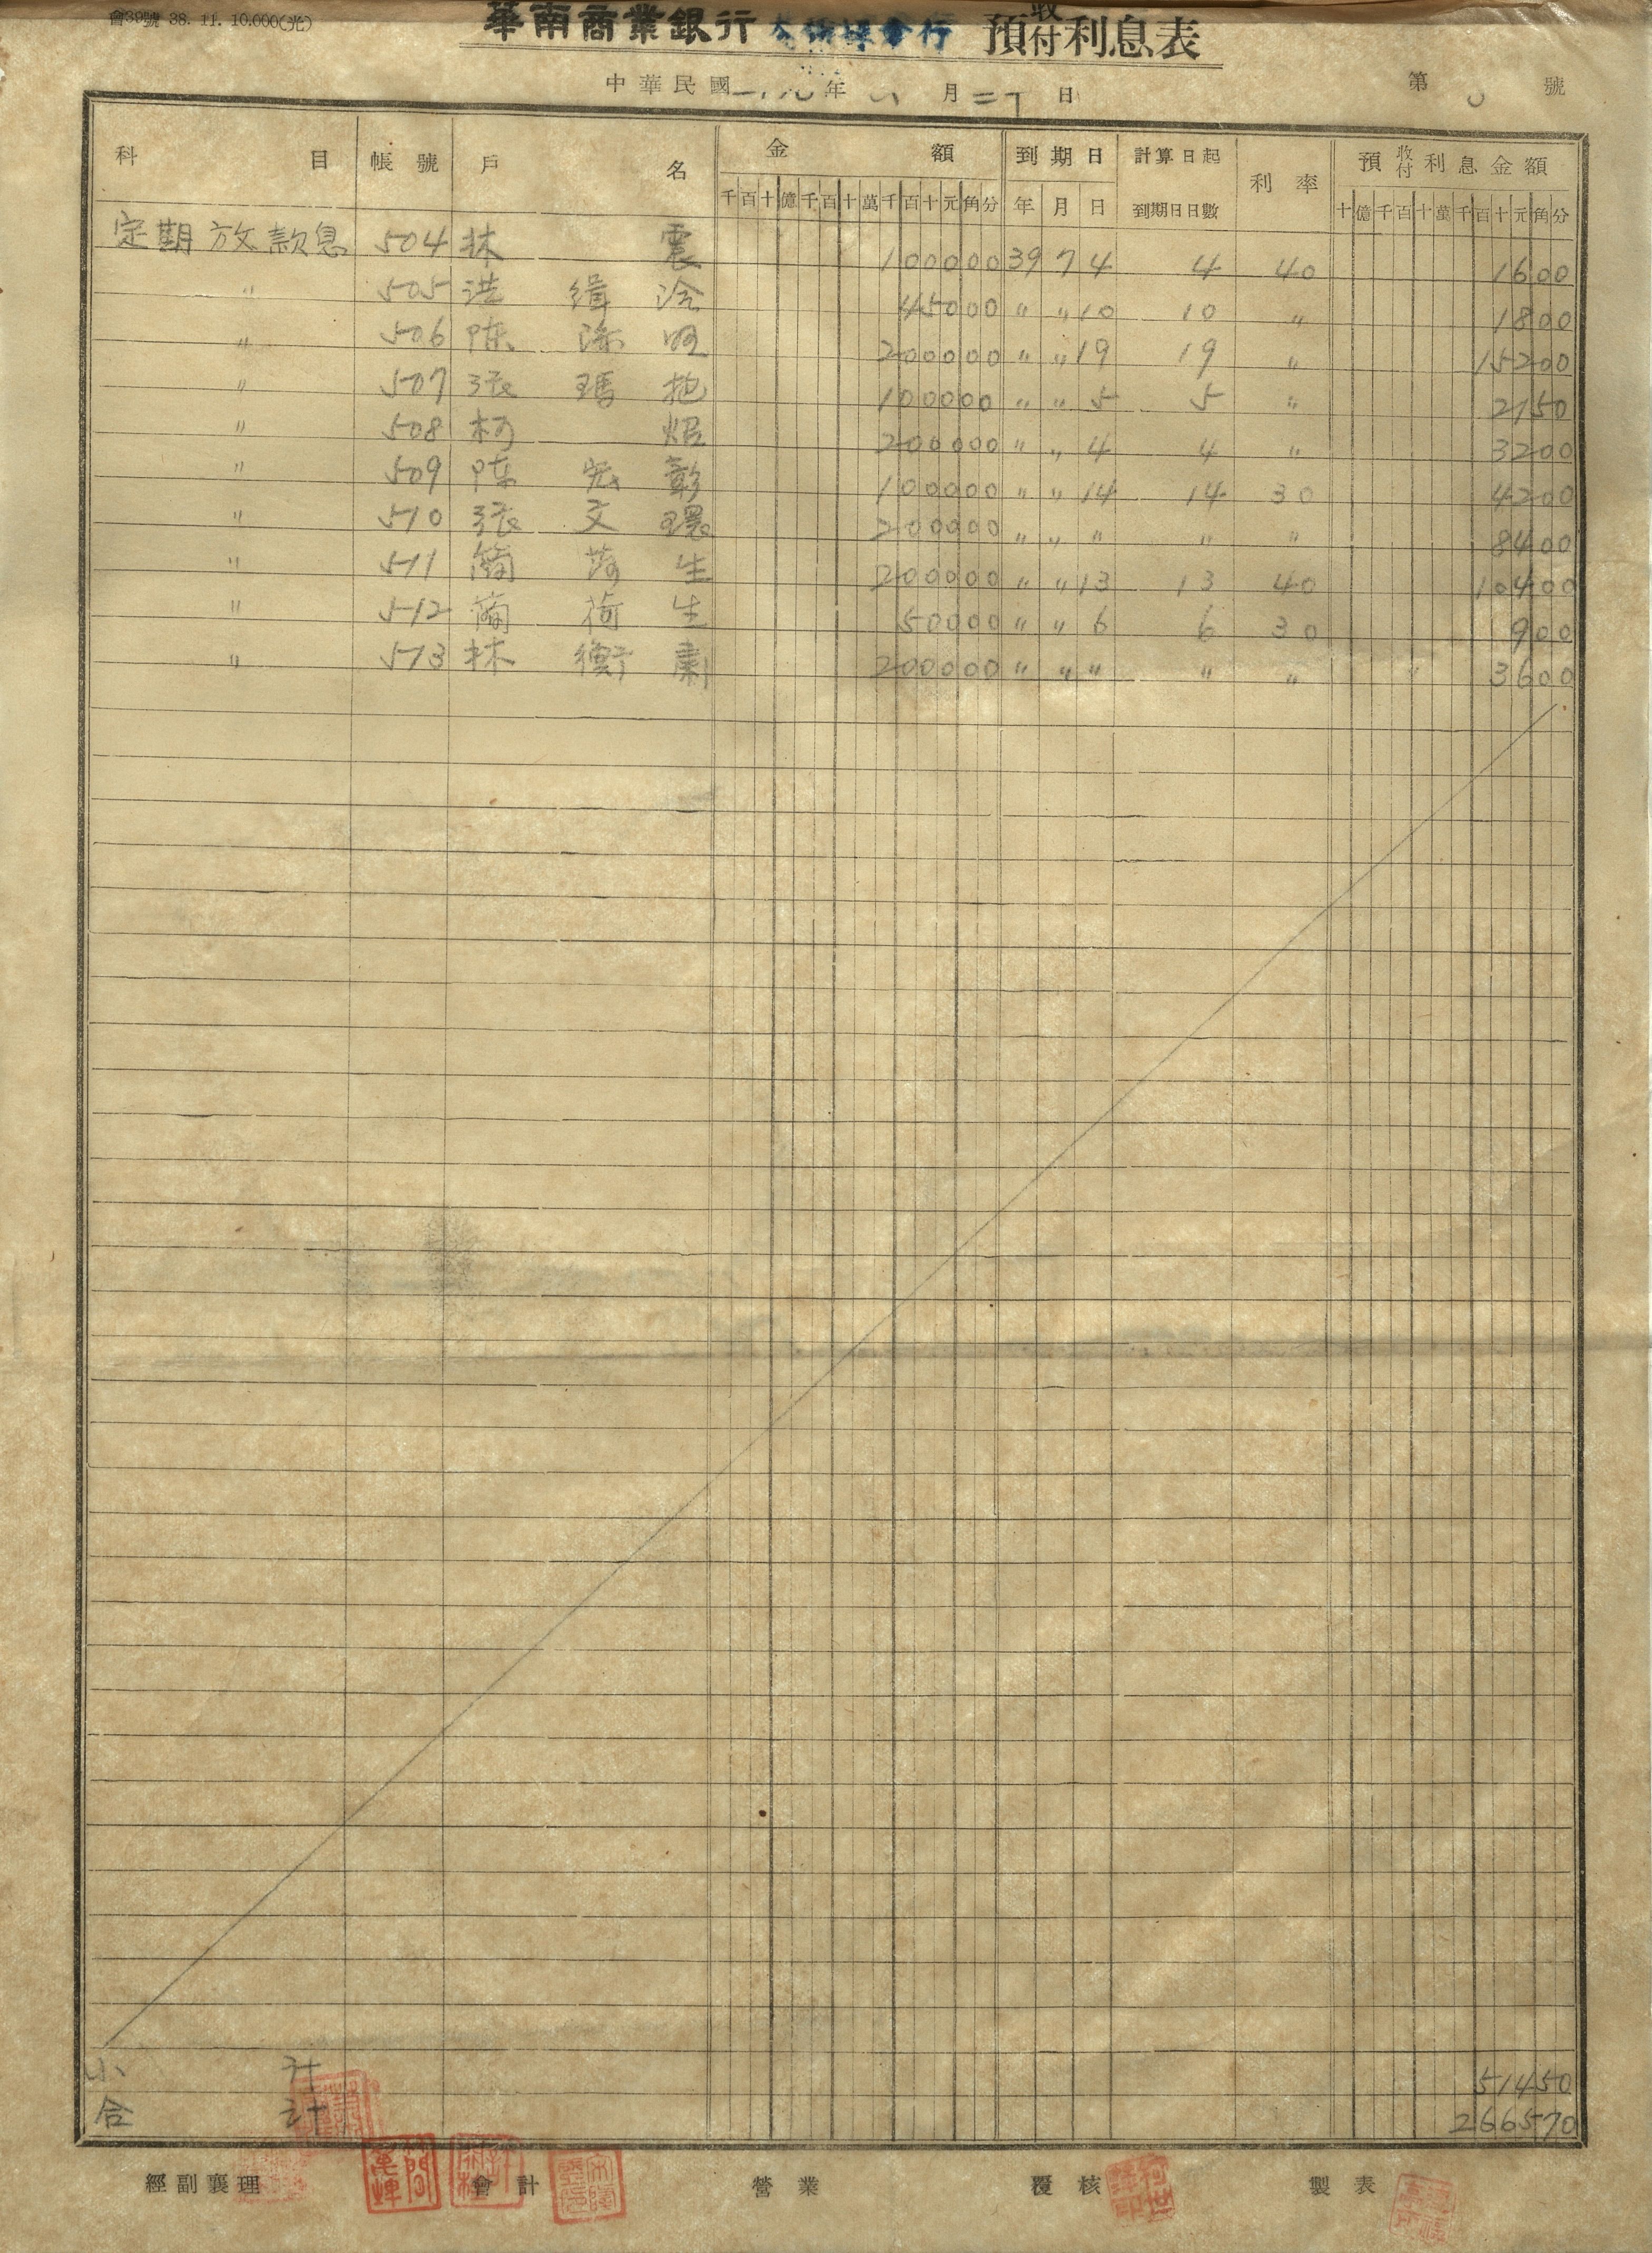 會39號 38. 11. 10.000(光)
華南商業銀行 大稻埕分行 預收付利息表
中華民國三十九年六月三十日 第 號
科目 帳號 戶名 金額 到期日 計算日起到期日日數 利率 預收付利息金額
千百十億千百十萬千百十元角分 年 月 日 十億千百十萬千百十元角分
定期放款息 504 林震 100000 39 7 4 4 40 1600
〃 505 洪 45000 〃 〃 10 10 〃 1800
〃 506 陈 200000 〃 〃 19 19 〃 15200
〃 507 張瑪抱 100000 〃 〃 5 5 〃 2150
〃 508 柯焜 200000 〃 〃 4 4 〃 3200
〃 509 陈宏彰 100000 〃 〃 14 14 30 4200
〃 510 張文環 200000 〃 〃 〃 〃 〃 8400
〃 511 簡荷生 200000 〃 〃 13 13 40 10400
〃 512 簡荷生 50000 〃 〃 6 6 30 900
〃 513 林衡肅 200000 〃 〃 〃 〃 〃 3600
小計 51450
合計 266570
經副襄理 會計 營業 覆核 製表